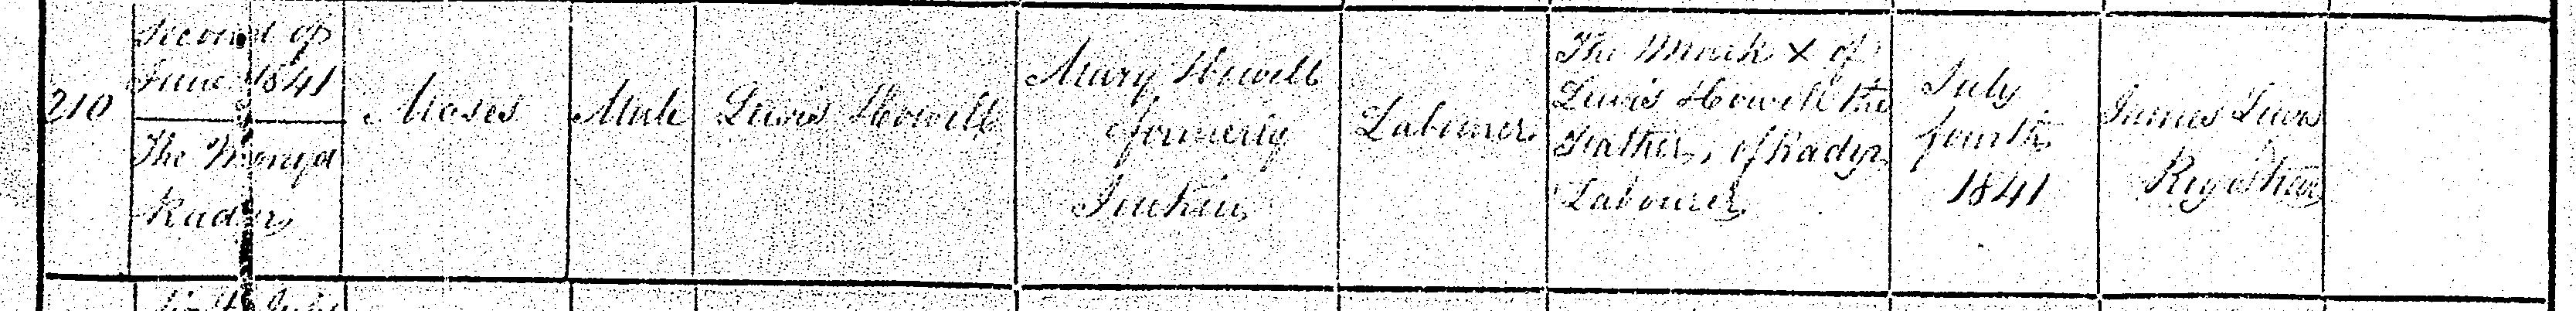 210
Second of
June 1841
The
Radyr
Moses
Male
Lewis Howell
Mary Howell
formerly
Jenkin
Labourer
The Mark X of
Lewis Howell the
Father, of Radyr
Labourer
July
fourth
1841
James Lewis
Registrar